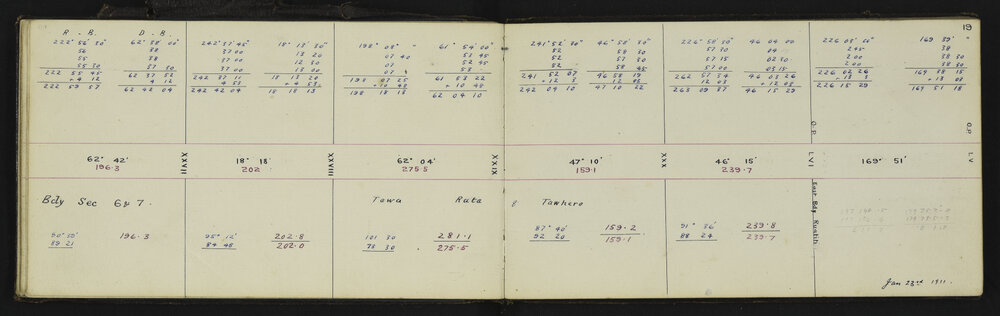 19
R. B. D. B.
222° 56' 30" 62° 38' 00"
56 38
55 38
55 30 37 30
222 55 45 62 37 52
+4 12 4 12
222 59 57 62 42 04
242° 37' 45" 18° 13' 30"
37 00 13 20
37 00 12 30
37 00 13 00
242 37 11 18 13 20
4 53 +4 53
242 42 04 18 18 13
198° 08' " 61° 54' 00"
07 40 53 45
07 52 45
07 53
198 07 25 61 53 22
+10 48 +10 48
198 18 13 62 04 10
241° 52' 30" 46° 58' 30"
52 58 30
52 57 30
52 58 45
241 52 07 46 58 19
+12 3 12 03
242 04 10 47 10 22
226° 58' 30" 46 04 00
57 30 04
57 15 02 30
57 00 03 15
262 57 34 46 03 26
12 03 +12 03
263 09 37 46 15 29
226 03' 00" 169 39' "
2 45 38
2 00 38 30
2 00 38 30
226 02 26 169 38 15
+13 3 +13 03
226 15 29 169 51 18
O.P. O.P.
62° 42' XXVII 18° 18' XXVIII 62° 04' XXIX 47° 10' XXX 46° 15' LVI 169° 51' LV
196·3 202· 275·5 159·1 239·7
Bdy Sec 6 & 7. Towa Rata & Tawhero
East Bdy
90° 39' 196·3
89 21
95° 12' 202·8
84 48 202·0
101 30 281·1
78 30 275·5
87° 40' 159·2
92 20 159·1
91° 36' 239·8
88 24 239·7
Jan 23rd 1911.